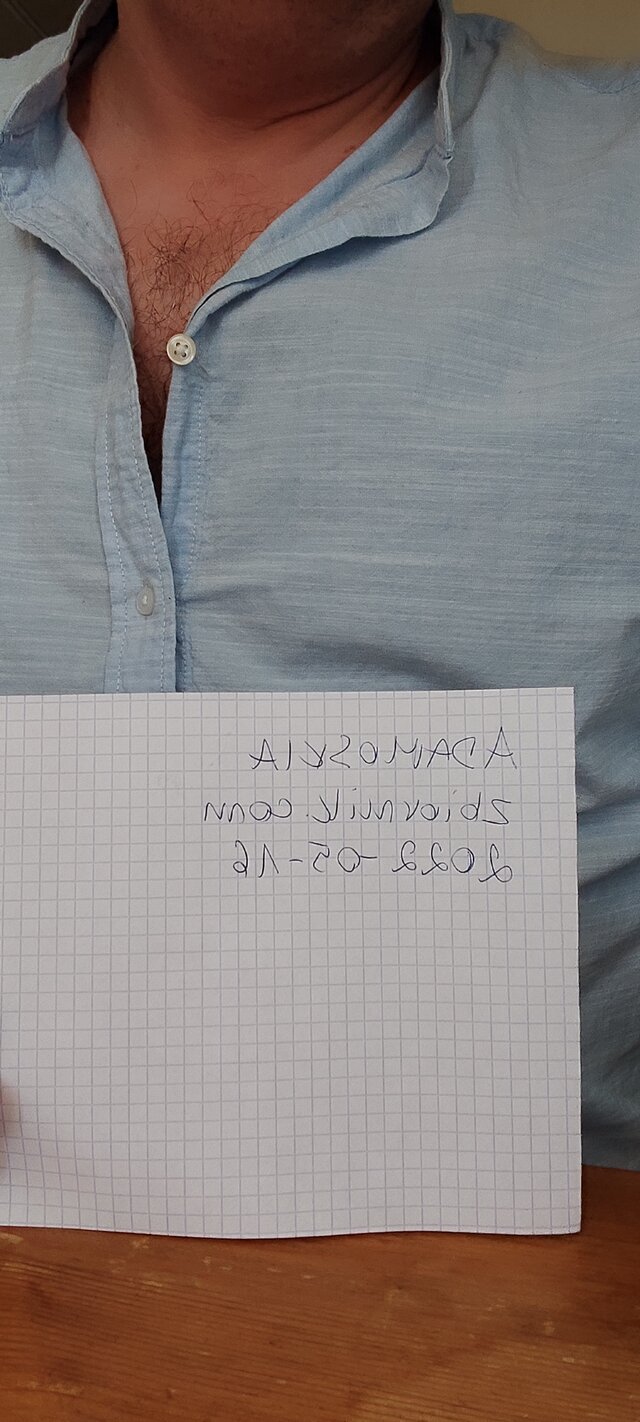 ADAMOSKIA
zbiornik.com
2022-05-16